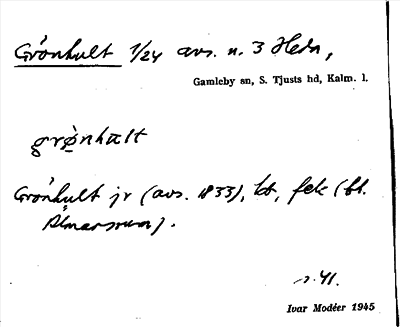 Grönhult 1/24 avs. n. 3 Hedn,
Gamleby sn, S. Tjusts hd, Kalm. l.
grø̀nhult
Grönhult jr (avs. 1833), ht, fek (bl.
s. 41.
Ivar Modéer 1945